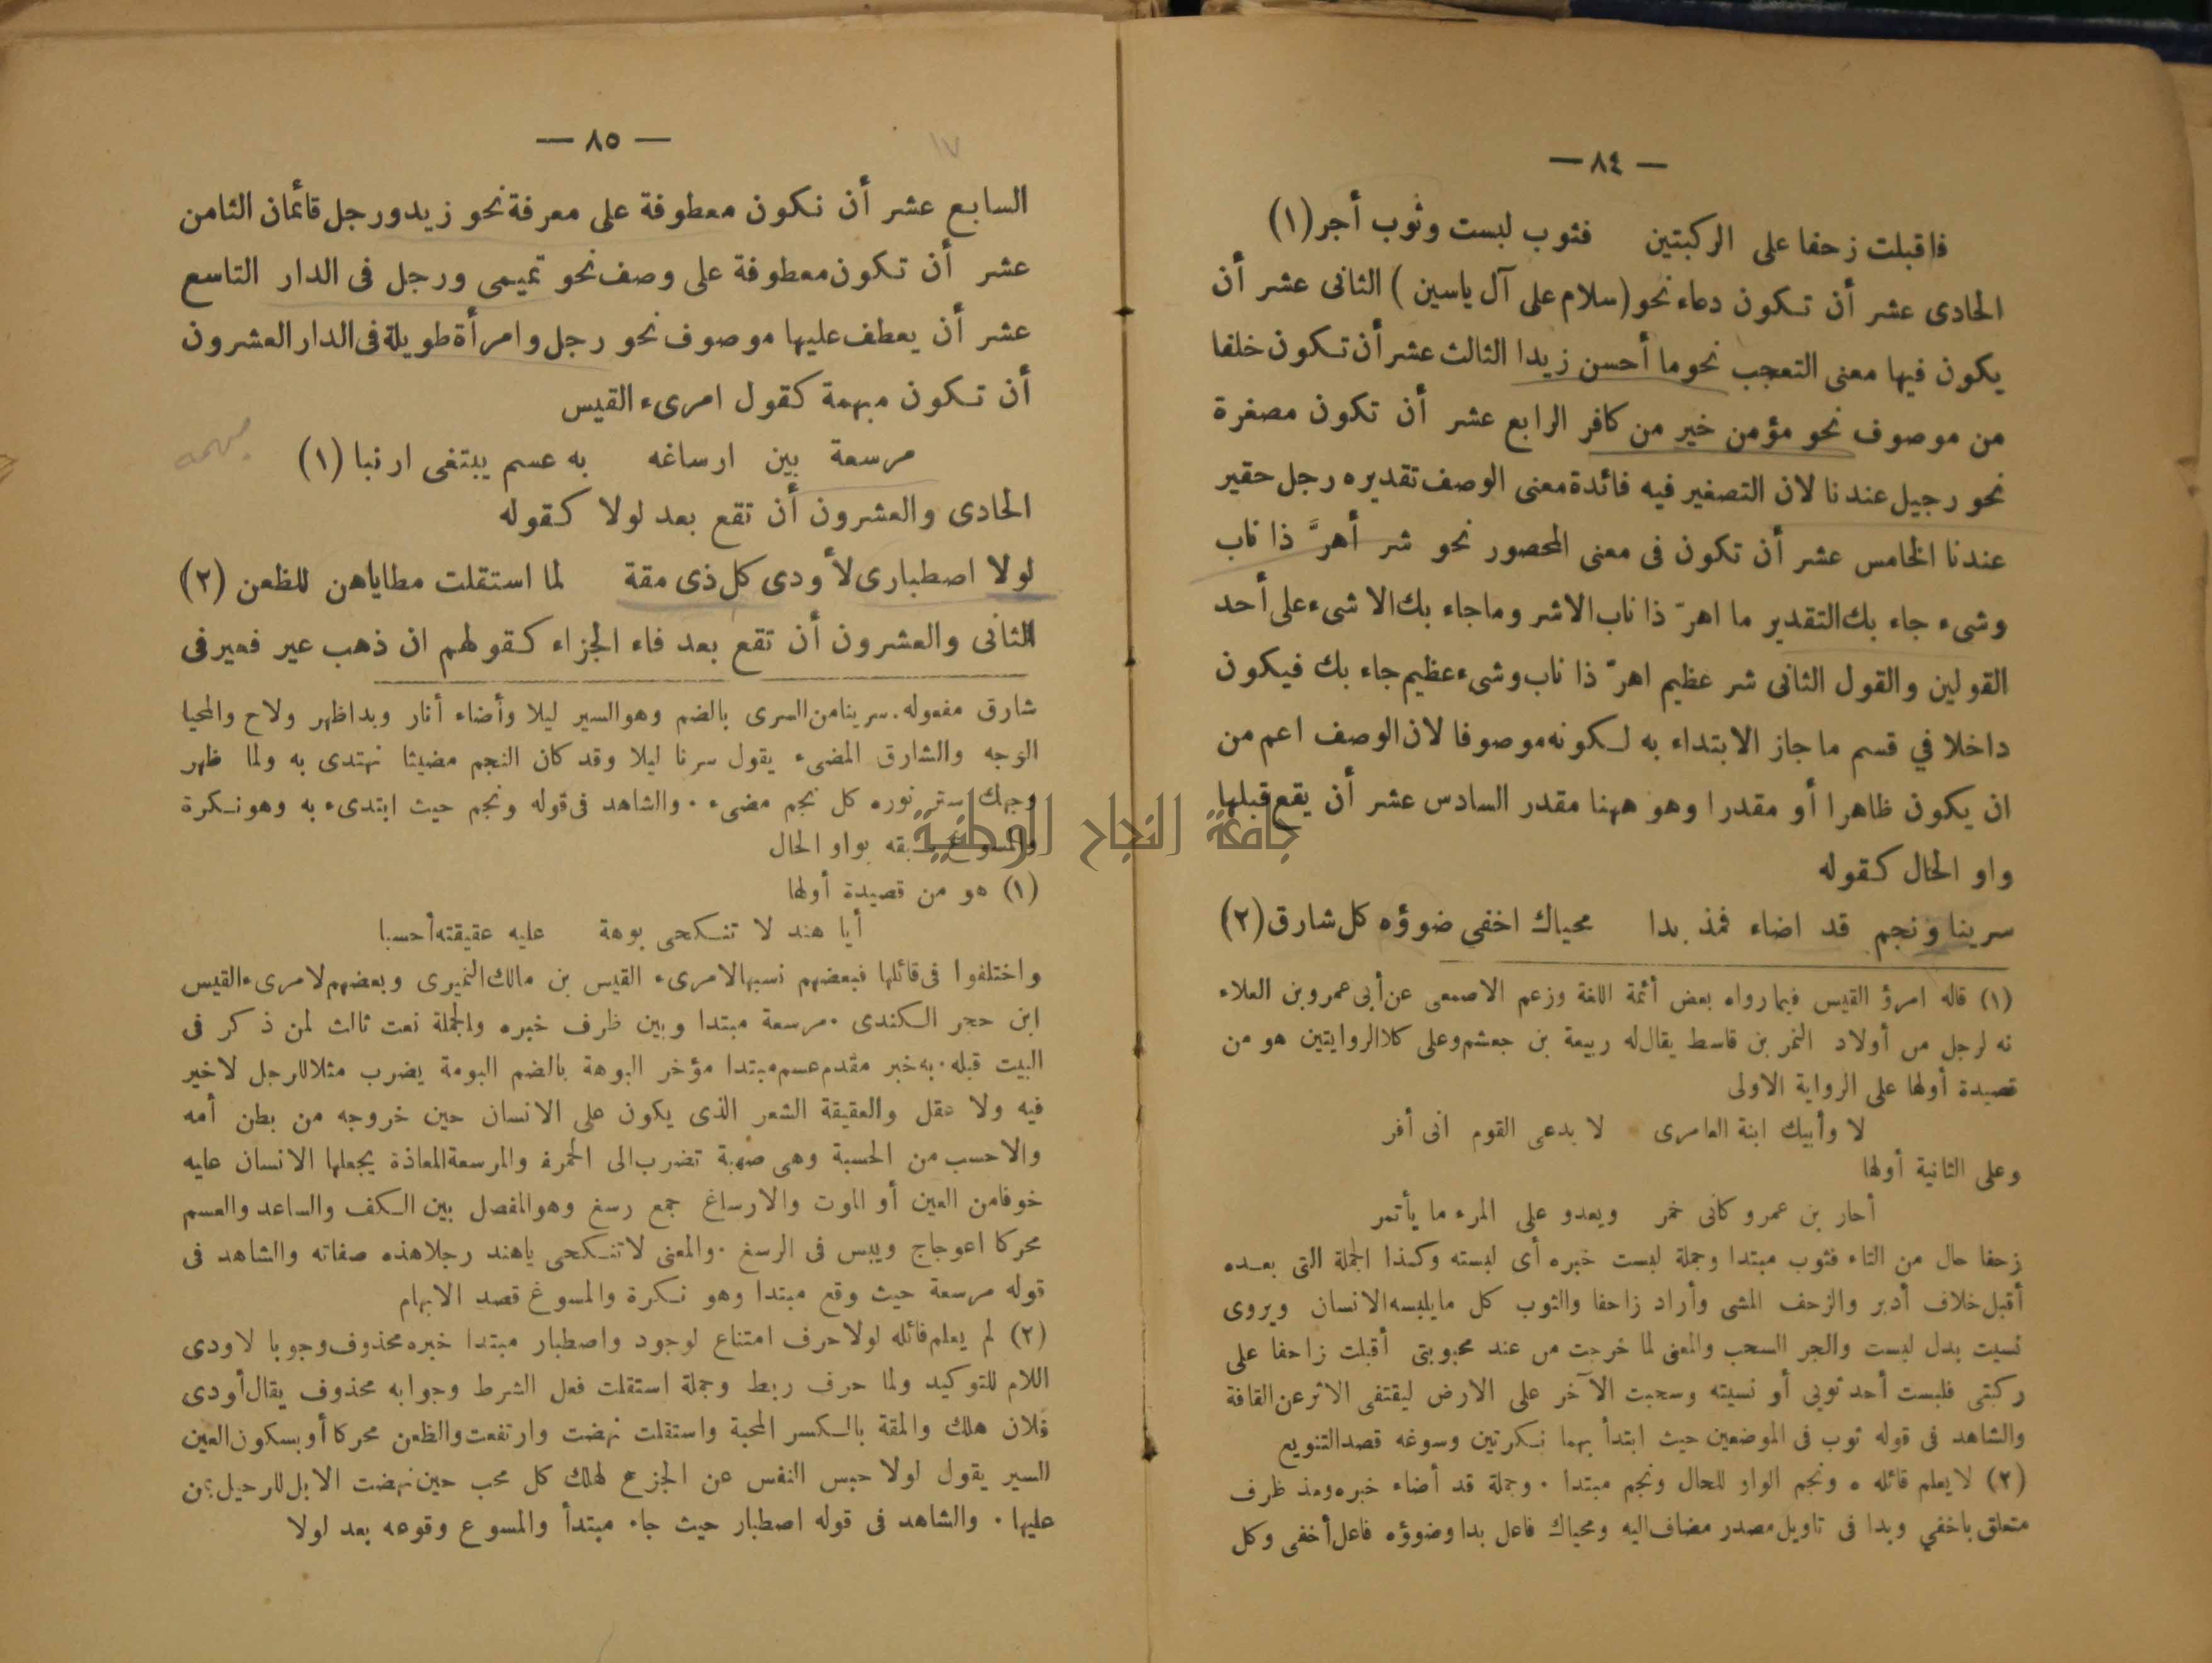 — ٨٤ —
فاقبلت زحفا على الركبتين فثوب لبست وثوب أجر (١)
الحادى عشر أن تكون دعاء نحو (سلام على آل ياسين) الثانى عشر أن
يكون فيها معنى التعجب نحو ما أحسن زيدا الثالث عشر أن تكون خلفا
من موصوف نحو مؤمن خير من كافر الرابع عشر أن تكون مصغرة
نحو رجيل عندنا لان التصغير فيه فائدة معنى الوصف تقديره رجل حقير
عندنا الخامس عشر أن تكون فى معنى المحصور نحو شر أهرَّ ذا ناب
وشىء جاء بك التقدير ما اهرّ ذا ناب الا شر وما جاء بك الا شىء على أحد
القولين والقول الثانى شر عظيم اهرّ ذا ناب وشىء عظيم جاء بك فيكون
داخلا في قسم ما جاز الابتداء به لكونه موصوفا لان الوصف اعم من
ان يكون ظاهرا أو مقدرا وهو ههنا مقدر السادس عشر أن يقع قبلها
واو الحال كقوله
سرينا ونجم قد اضاء فمذ بدا محياك اخفى ضوؤه كل شارق (٢)
(١) قاله امرؤ القيس فيما رواه بعض أئمة اللغة وزعم الاصمعى عن أبى عمرو بن العلاء
نه لرجل من أولاد النمر بن قاسط يقال له ربيعة بن جعشم وعلى كلا الروايتين هو من
قصيدة أولها على الرواية الاولى
لا وأبيك ابنة العامرى لا يدعى القوم انى أفر
وعلى الثانية أولها
أحار بن عمرو كانى خمر ويعدو على المرء ما يأتمر
زحفا حال من التاء فثوب مبتدا وجملة لبست خبره أى لبسته وكذا الجملة التى بعده
أقبل خلاف أدبر والزحف المشى وأراد زاحفا والثوب كل ما يلبسه الانسان ويروى
نسيت بدل لبست والجر السحب والمعنى لما خرجت من عند محبوبتى أقبلت زاحفا على
ركبتى فلبست أحد ثوبى أو نسيته وسحبت الآخر على الارض ليقتفى الاثر عن القافة
والشاهد فى قوله ثوب فى الموضعين حيث ابتدأ بهما نكرتين وسوغه قصد التنويع
(٢) لا يعلم قائله ه ونجم الواو للحال ونجم مبتدا ٠ وجملة قد أضاء خبره ومذ ظرف
متعلق باخفى وبدا فى تاويل مصدر مضاف اليه ومحياك فاعل بدا وضوؤه فاعل أخفى وكل
— ٨٥ —
١٧
السابع عشر أن نكون معطوفة على معرفة نحو زيد ورجل قائمان الثامن
عشر أن تكون معطوفة على وصف نحو تميمى ورجل فى الدار التاسع
عشر أن يعطف عليها موصوف نحو رجل وامرأة طويلة فى الدار العشرون
أن تكون مبهمة كقول امرىء القيس
مبهمه
مرسعة بين ارساغه به عسم يبتغى ارنبا (١)
الحادى والعشرون أن تقع بعد لولا كقوله
لولا اصطبارى لأودى كل ذى مقة لما استقلت مطاياهن للظعن (٢)
الثانى والعشرون أن تقع بعد فاء الجزاء كقولهم ان ذهب عير فعير فى
شارق مفعوله. سرينا من السرى بالضم وهو السير ليلا وأضاء أنار وبدا ظهر ولاح والمحيا
الوجه والشارق المضىء يقول سرنا ليلا وقد كان النجم مضيئا نهتدى به ولما ظهر
وجهك ستر نوره كل نجم مضىء ٠ والشاهد فى قوله ونجم حيث ابتدىء به وهو نكرة
والمسوغ سبقه بواو الحال
جامعة النجاح الوطنية
(١) هو من قصيدة أولها
أيا هند لا تنكحى بوهة عليه عقيقته أحسبا
واختلفوا فى قائلها فبعضهم نسبها لامرىء القيس بن مالك النميرى وبعضهم لامرىء القيس
ابن حجر الكندى ٠ مرسعة مبتدا وبين ظرف خبره والجملة نعت ثالث لمن ذكر فى
البيت قبله ٠ به خبر مقدم عسم مبتدا مؤخر البوهة بالضم البومة يضرب مثلا للرجل لا خير
فيه ولا عقل والعقيقة الشعر الذى يكون على الانسان حين خروجه من بطن أمه
والاحسب من الحسبة وهى صهبة تضرب الى الحمرة والمرسعة المعاذة يجعلها الانسان عليه
خوفا من العين أو الموت والارساغ جمع رسغ وهو المفصل بين الكف والساعد والعسم
محركا اعوجاج ويبس فى الرسغ ٠ والمعنى لا تنكحى يا هند رجلا هذه صفاته والشاهد فى
قوله مرسعة حيث وقع مبتدا وهو نكرة والمسوغ قصد الابهام
(٢) لم يعلم قائله لولا حرف امتناع لوجود واصطبار مبتدا خبره محذوف وجوبا لاودى
اللام للتوكيد ولما حرف ربط وجملة استقلت فعل الشرط وجوابه محذوف يقال أودى
فلان هلك والمقة بالكسر المحبة واستقلت نهضت وارتفعت والظعن محركا أو بسكون العين
السير يقول لولا حبس النفس عن الجزع لهلك كل محب حين نهضت الابل للرحيل بمن
عليها ٠ والشاهد فى قوله اصطبار حيث جاء مبتدأ والمسوغ وقوعه بعد لولا